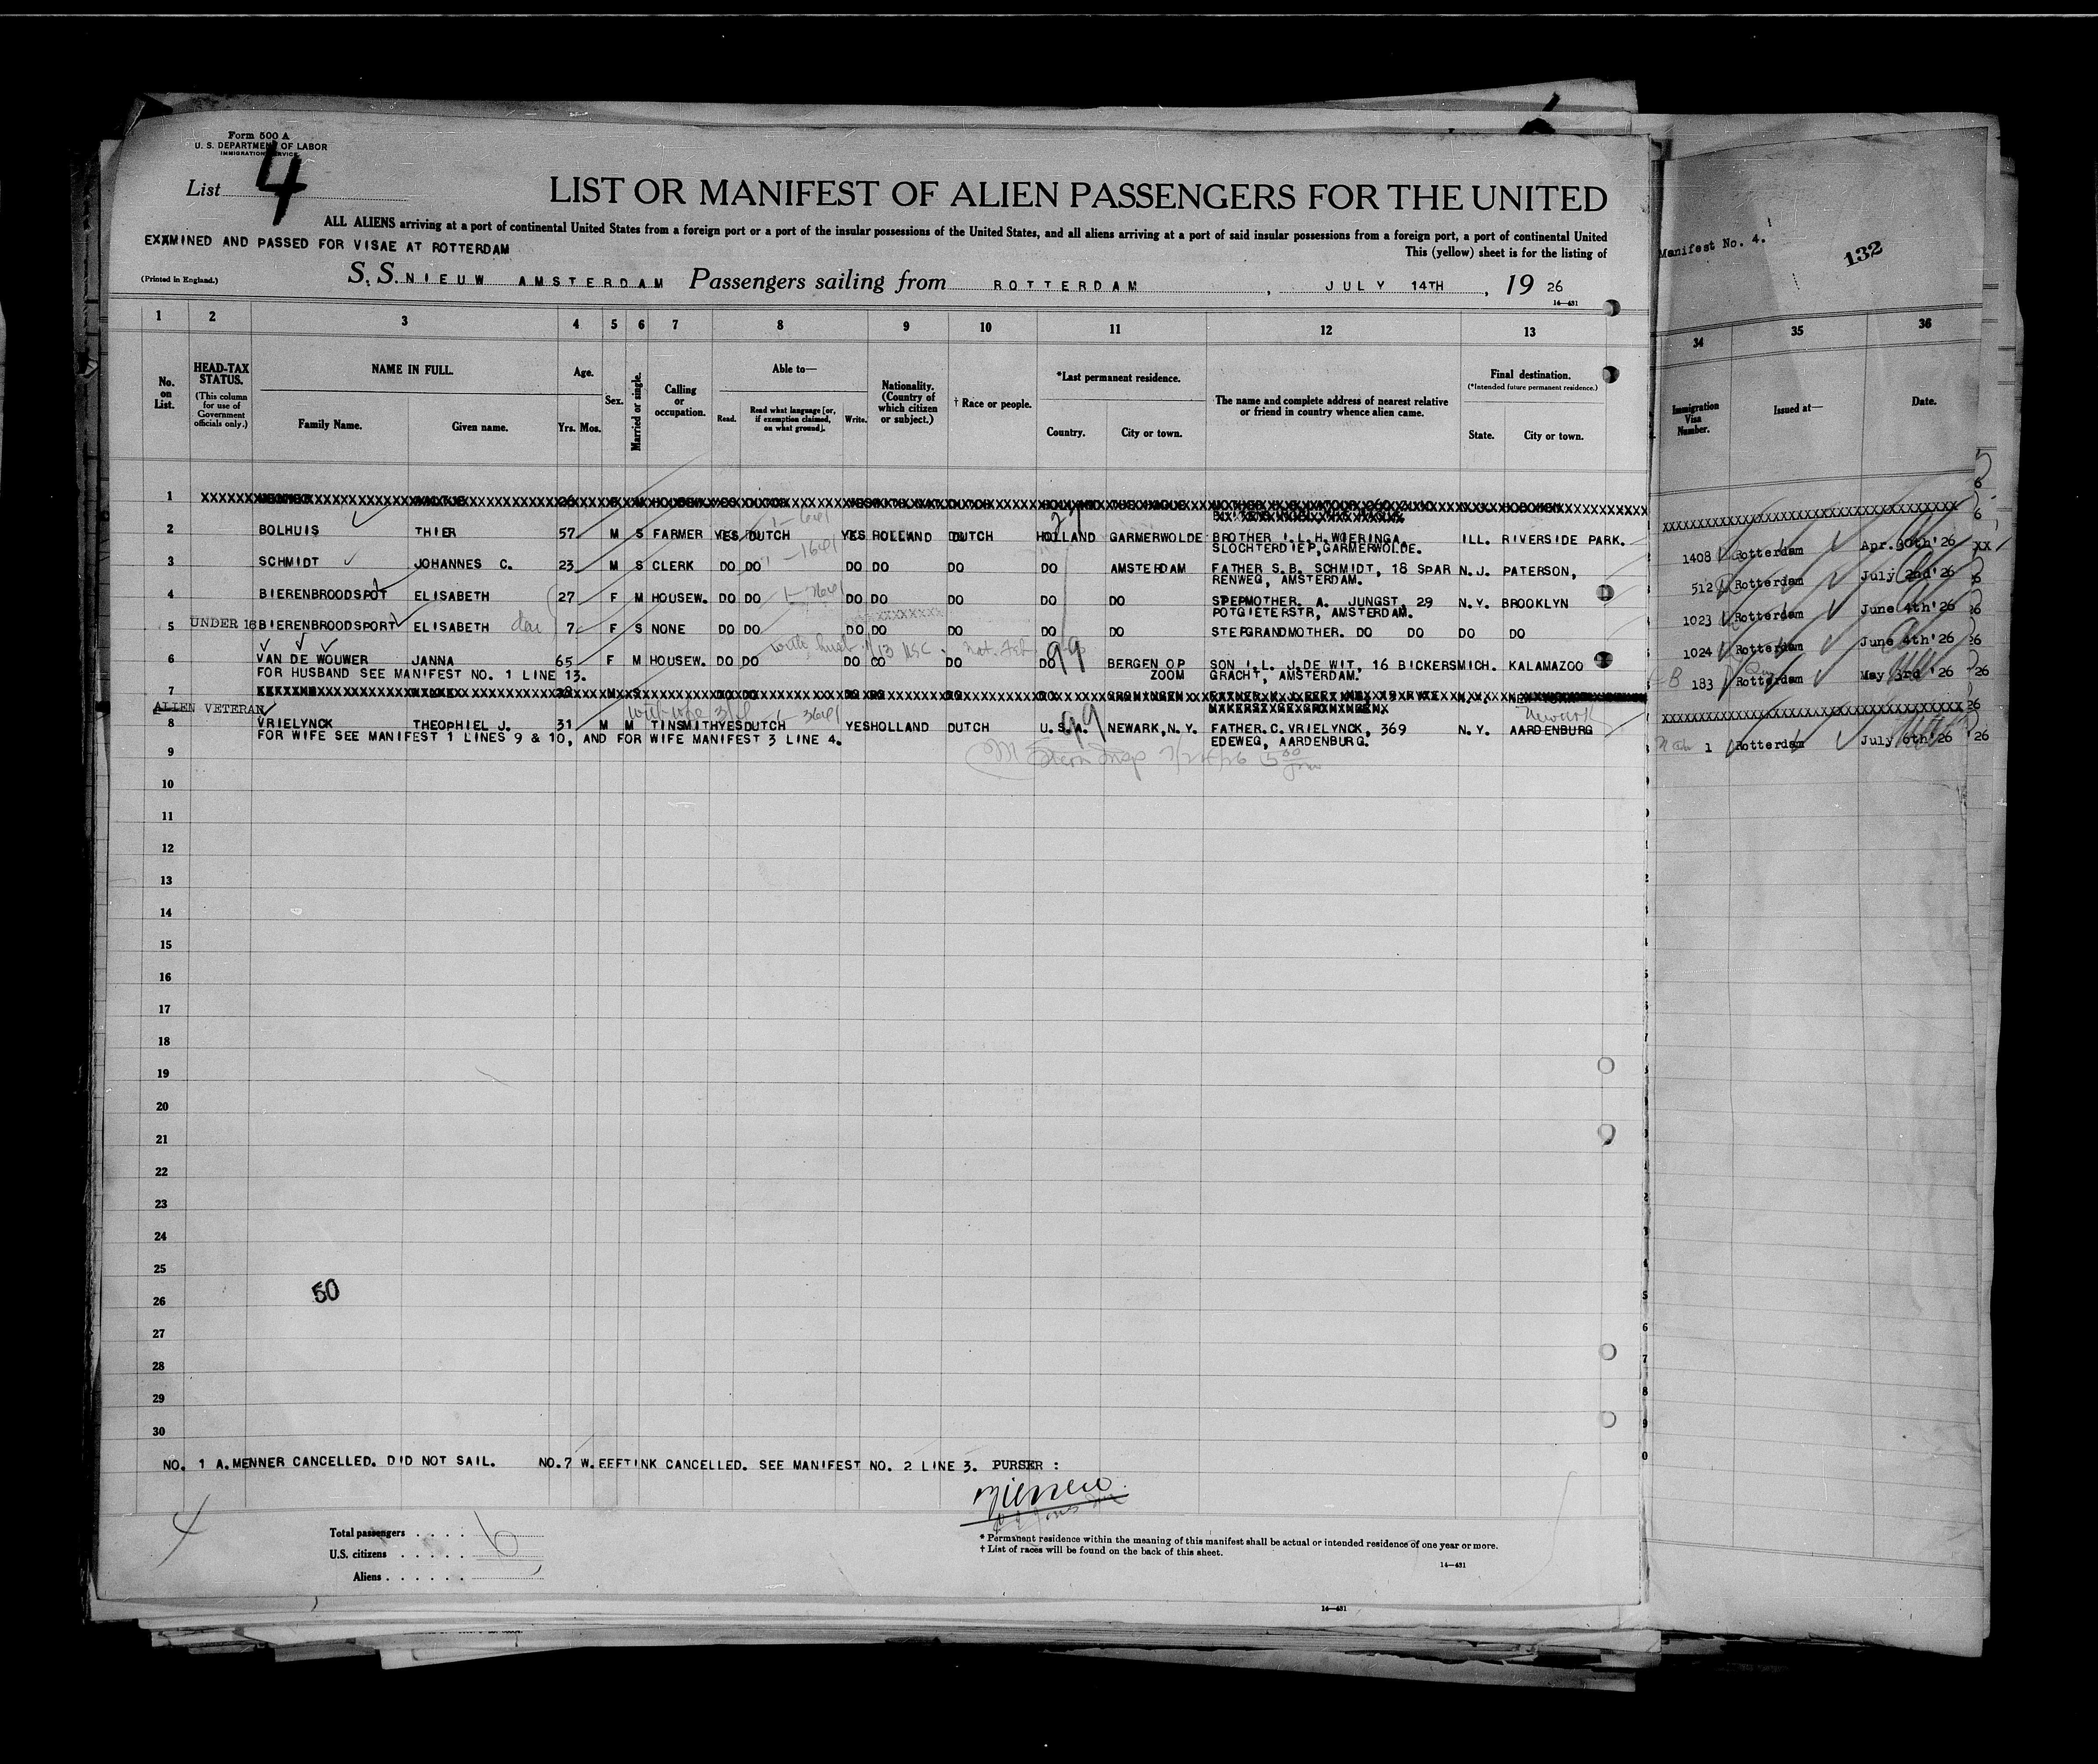 Form 500 A
U. S. DEPARTMENT OF LABOR
IMMIGRATION SERVICE
List 4
LIST OR MANIFEST OF ALIEN PASSENGERS FOR THE UNITED
ALL ALIENS arriving at a port of continental United States from a foreign port or a port of the insular possessions of the United States, and all aliens arriving at a port of said insular possessions from a foreign port, a port of continental United
EXAMINED AND PASSED FOR VISAE AT ROTTERDAM
This (yellow) sheet is for the listing of
(Printed in England.)
S. S. NIEUW AMSTERDAM Passengers sailing from ROTTERDAM, JULY 14TH, 19 26
14—431
Manifest No. 4.
132
1 2 3 4 5 6 7 8 9 10 11 12 13
34 35 36
No. on List.
HEAD-TAX STATUS. (This column for use of Government officials only.)
NAME IN FULL.
Family Name. Given name.
Age.
Yrs. Mos.
Sex.
Married or single.
Calling or occupation.
Able to—
Read. Read what language [or, if exemption claimed, on what ground]. Write.
Nationality. (Country of which citizen or subject.)
† Race or people.
*Last permanent residence.
Country. City or town.
The name and complete address of nearest relative or friend in country whence alien came.
Final destination.
(*Intended future permanent residence.)
State. City or town.
Immigration Visa Number.
Issued at—
Date.
1
2 BOLHUIS THIER 57 M S FARMER YES DUTCH YES HOLLAND DUTCH HOLLAND GARMERWOLDE BROTHER I.L.H.WIERINGA, ILL. RIVERSIDE PARK. 1408 Rotterdam Apr.30th'26
SLOCHTERDIEP,GARMERWOLDE.
3 SCHMIDT JOHANNES C. 23 M S CLERK DO DO DO DO DO DO AMSTERDAM FATHER S.B. SCHMIDT, 18 SPAR N.J. PATERSON, 512 Rotterdam July 2nd'26
RENWEG, AMSTERDAM.
4 BIERENBROODSPOT ELISABETH 27 F M HOUSEW. DO DO DO DO DO DO DO STEPMOTHER. A. JUNGST, 29 N.Y. BROOKLYN 1023 Rotterdam June 4th'26
POTGIETERSTR, AMSTERDAM.
UNDER 16
5 BIERENBROODSPORT ELISABETH 7 F S NONE DO DO DO DO DO DO DO STEPGRANDMOTHER. DO DO DO DO 1024 Rotterdam June 4th'26
6 VAN DE WOUWER JANNA 65 F M HOUSEW. DO DO DO CO DO DO BERGEN OP SON I.L. J.DE WIT, 16 BICKERS MICH. KALAMAZOO 183 Rotterdam May 3rd '26
FOR HUSBAND SEE MANIFEST NO. 1 LINE 13. ZOOM GRACHT, AMSTERDAM.
7
ALIEN VETERAN
Newark
8 VRIELYNCK THEOPHIEL J. 31 M M TINSMITH YES DUTCH YES HOLLAND DUTCH U.S.A. NEWARK, N.Y. FATHER.C.VRIELYNCK, 369 N.Y. AARDENBURG 1 Rotterdam July 6th'26
FOR WIFE SEE MANIFEST 1 LINES 9 & 10, AND FOR WIFE MANIFEST 3 LINE 4. EDEWEG, AARDENBURG.
9
10
11
12
13
14
15
16
17
18
19
20
21
22
23
24
25
50
26
27
28
29
30
NO. 1 A.MENNER CANCELLED. DID NOT SAIL. NO.7 W.EEFTINK CANCELLED. SEE MANIFEST NO. 2 LINE 3. PURSER :
4
Total passengers . . . . 6
U.S. citizens . . . . .
Aliens . . . . . .
* Permanent residence within the meaning of this manifest shall be actual or intended residence of one year or more.
† List of races will be found on the back of this sheet.
14—431
14—431